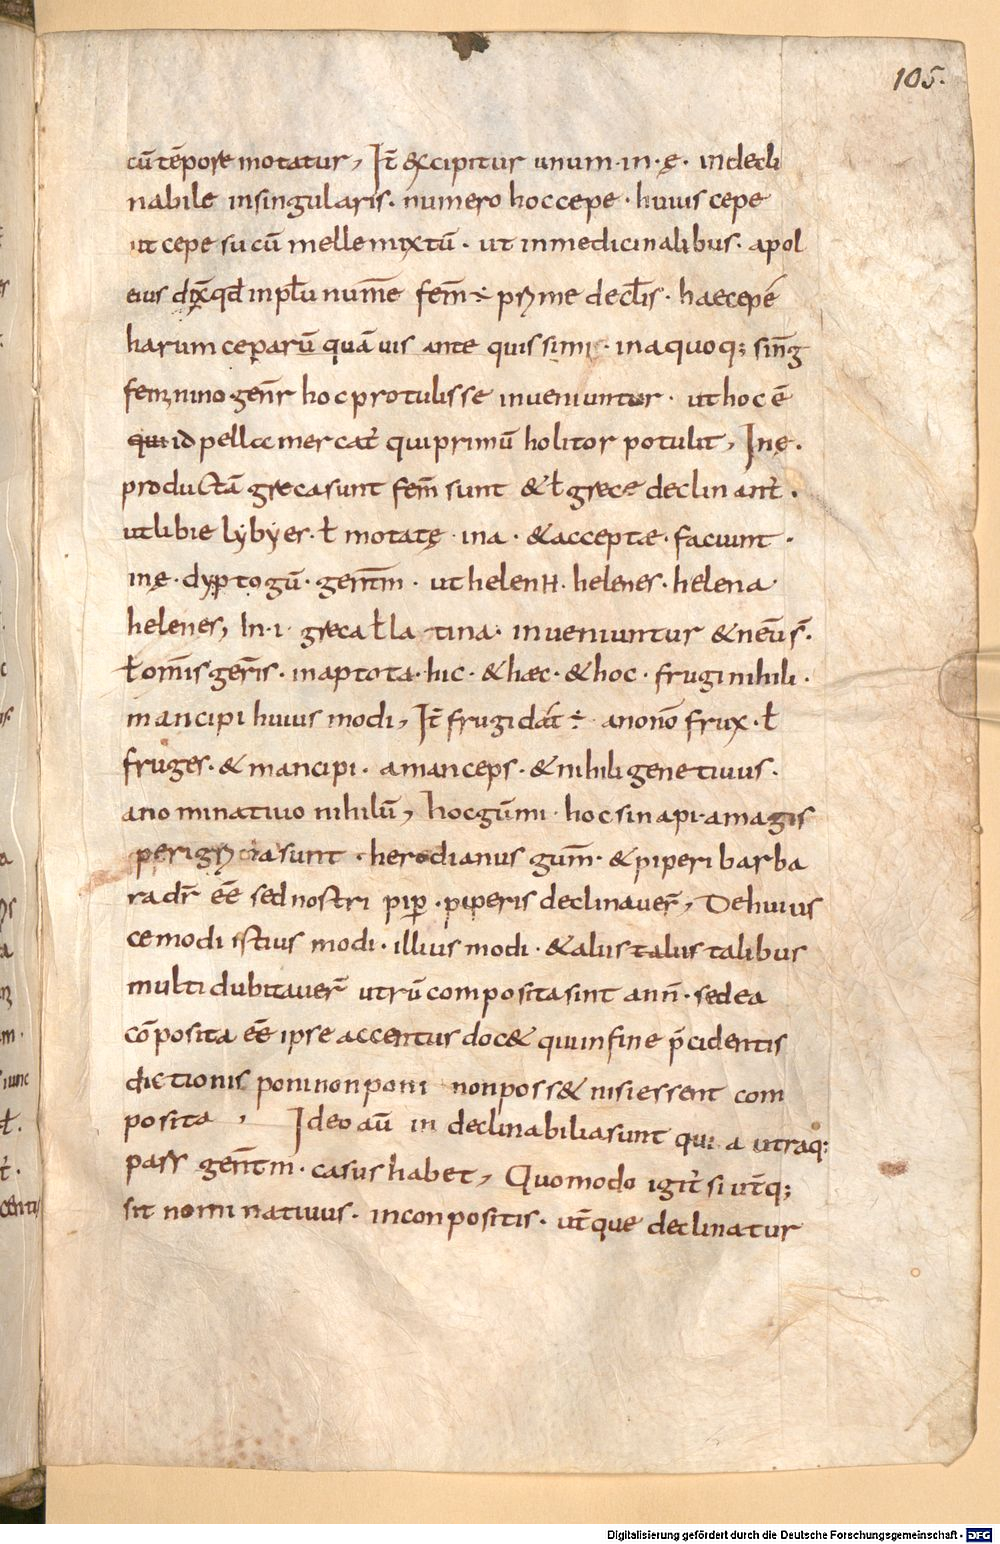 105.
cū tēpore motatur, It̄ excipitur unum · in · ę · indecli
nabile insingularis · numero hoc cepe · huius cepe
ut cepe sucū melle mixtū · ut inmedicinalibus · apol
eius qđ inpłu num̄e fem̄ ÷ pryme decłis · haecepe
harum ceparū quāuis ante quissimi · in a quoq; sinḡ
femnino gen̄r hoc protulisse inueniuntur · ut hoc ē
id pellæ mercat̄ qui primū holitor potulit, In ę ·
productā greca sunt fem̄ sunt & ł grece declinant̄ ·
ut libie lẏbẏer · ł motatę · in a · & acceptæ · faciunt ·
in ę · dyptogū · gen̄tm · ut helenH · helenes · helena ·
helenes, In · i · greca ł latina · inueniuntur & neūs̄ ·
ł om̄is gen̄is · in aptota · hic · & hæc · & hoc · frugi nihili ·
mancipi huius modi, It̄ frugi dat̄ ÷ a nonō frux · ł
fruges · & mancipi · a manceps · & nihili genetiuus ·
a nominatiuo nihilū, hoc gūmi · hoc sinapi · a magis
sunt · herodianus gum̄ · & piperi barba
radr̄ eē sed nostri pip̄ · piperis declinauer̄, De huius
cemodi istius modi · illius modi · & alius talius talibus
multi dubitauer̄ utrū composita sint ann̄ · sed ea
cōposita eē ipse accentus doc& qui in fine p̄cidentis
dictionis poni non poni non poss& nisi essent com
posita, Ideo aū in declinabilia sunt qui a utraq;
pass gen̄tm · casus habet, Quomodo igit̄ si ut̄q;
sit nominatiuus · in conpositis · ut̄que declinatur
Digitalisierung gefördert durch die Deutsche Forschungsgemeinschaft - DFG